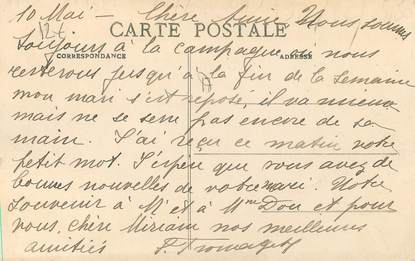 10 Mai - Chère Amie, Nous sommes
CARTE POSTALE
toujours à la campagne où nous
CORRESPONDANCE ADRESSE
resterons jusqu'à la fin de la semaine
mon mari s'est reposé, il va mieux
mais ne se sert pas encore de sa
main. J'ai reçu ce matin votre
petit mot. J'espère que vous avez de
bonnes nouvelles de votre mari. Notre
souvenir à Mr et à Mme Dou et pour
vous, chère Miriam nos meilleures
amitiés